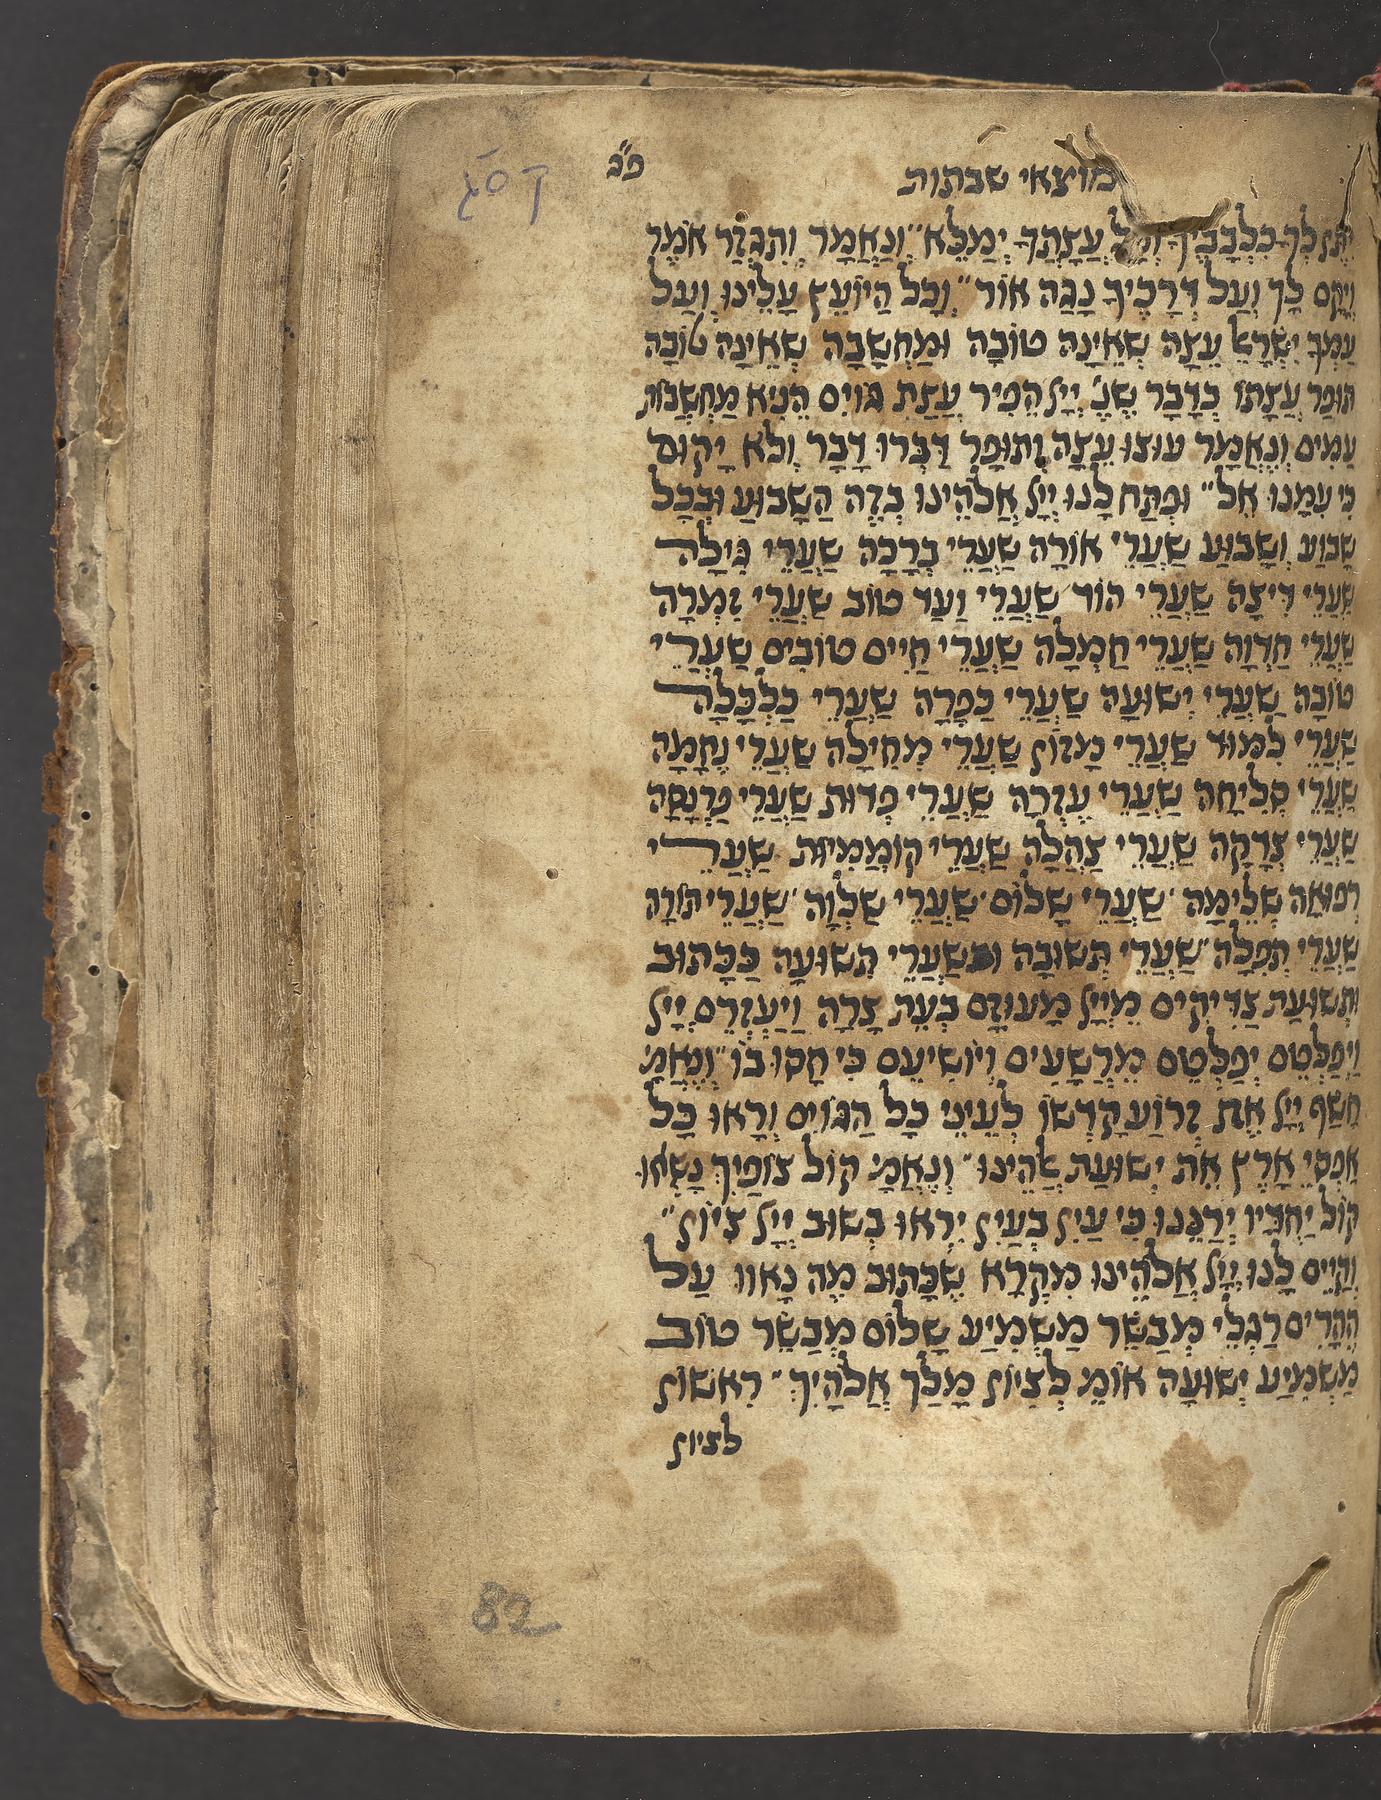 קסג
פ״ב
מוצאי שבתות
יִתֶּן לְךָ כִלְבָבֶךָ וְכָל עֲצָתְךָ יְמַלֵּא״ וְנֶאֱמַר וְתִגְזַר אֹמֶר
וְיָקָם לָךְ וְעַל דְּרָכֶיךָ נָגַהּ אוֹר״ וְכָל הַיּוֹעֵץ עָלֵינוּ וְעַל
עַמְּךָ יִשְׂרָאֵל עֵצָה שֶׁאֵינָהּ טוֹבָה וּמַחְשָׁבָה שֶׁאֵינָהּ טוֹבָה
תּוּפַר עֲצָתוֹ כַּדָּבָר שֶׁנֶּ׳ יְיָ הֵפִיר עֲצַת גּוֹיִם הֵנִיא מַחְשְׁבוֹת
עַמִּים וְנֶאֱמַר עוּצוּ עֵצָה וְתוּפָר דַּבְּרוּ דָבָר וְלֹא יָקוּם
כִּי עִמָּנוּ אֵל״ וּפְתַח לָנוּ יְיָ אֱלֹהֵינוּ בְּזֶה הַשָּׁבוּעַ וּבְכָל
שָׁבוּעַ וְשָׁבוּעַ שַׁעֲרֵי אוֹרָה שַׁעֲרֵי בְרָכָה שַׁעֲרֵי גִילָה
שַׁעֲרֵי דִיצָה שַׁעֲרֵי הוֹד שַׁעֲרֵי וַעַד טוֹב שַׁעֲרֵי זִמְרָה
שַׁעֲרֵי חֶדְוָה שַׁעֲרֵי חֶמְלָה שַׁעֲרֵי חַיִּים טוֹבִים שַׁעֲרֵי
טוֹבָה שַׁעֲרֵי יְשׁוּעָה שַׁעֲרֵי כַפָּרָה שַׁעֲרֵי כַלְכָּלָה
שַׁעֲרֵי לִמּוּד שַׁעֲרֵי מָזוֹן שַׁעֲרֵי מְחִילָה שַׁעֲרֵי נֶחָמָה
שַׁעֲרֵי סְלִיחָה שַׁעֲרֵי עֶזְרָה שַׁעֲרֵי פְדוּת שַׁעֲרֵי פַרְנָסָה
שַׁעֲרֵי צְדָקָה שַׁעֲרֵי צָהֳלָה שַׁעֲרֵי קוֹמֲמִיּוּת שַׁעֲרֵי
רְפוּאָה שְׁלֵימָה שַׁעֲרֵי שָׁלוֹם שַׁעֲרֵי שַׁלְוָה שַׁעֲרֵי תוֹרָה
שַׁעֲרֵי תְפִלָּה שַׁעֲרֵי תְּשׁוּבָה וּבְשַׁעֲרֵי תְשׁוּעָה כַּכָּתוּב
וּתְשׁוּעַת צַדִּיקִים מֵיְיָ מָעוּזָּם בְּעֵת צָרָה וַיַּעְזְרֵם יְיָ
וַיְפַלְּטֵם יְפַלְּטֵם מֵרְשָׁעִים וְיוֹשִׁיעֵם כִּי חָסוּ בוֹ״ וְנֶאֱמַ׳
חָשַׂף יְיָ אֶת זְרוֹעַ קָדְשׁוֹ לְעֵינֵי כָל הַגּוֹיִם וְרָאוּ כָּל
אַפְסֵי אָרֶץ אֵת יְשׁוּעַת אֱלֹהֵינוּ״ וְנֶאֱמַ׳ קוֹל צוֹפַיִךְ נָשְׂאוּ
קוֹל יַחְדָּיו יְרַנֵּנוּ כִּי עַיִן בְּעַיִן יִרְאוּ בְּשׁוּב יְיָ צִיּוֹן״
וְקַיֵּים לָנוּ יְיָ אֱלֹהֵינוּ מִקְרָא שֶׁכָּתוּב מַה נָּאווּ עַל
הֶהָרִים רַגְלֵי מְבַשֵּׂר מַשְׁמִיעַ שָׁלוֹם מְבַשֵּׂר טוֹב
מַשְׁמִיעַ יְשׁוּעָה אוֹמֵ׳ לְצִיּוֹן מָלַךְ אֱלֹהָיִךְ״ רִאשׁוֹן
לציון
82